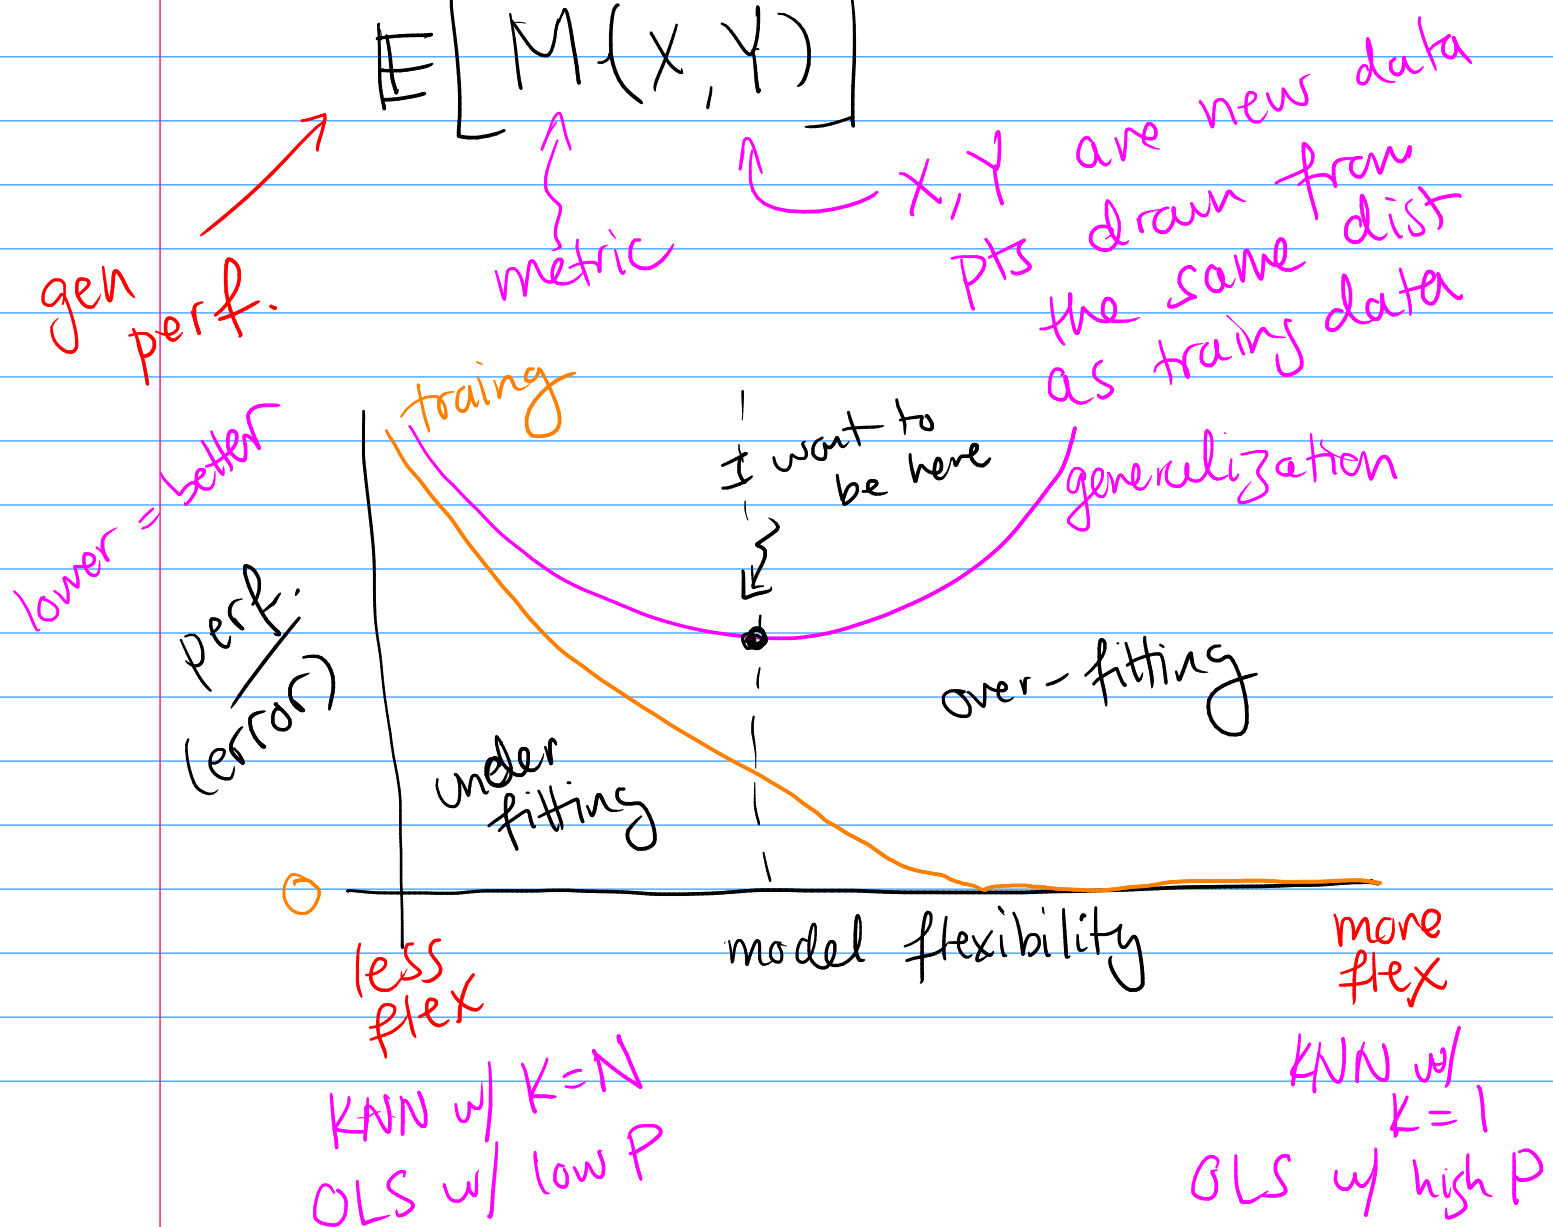 E[M(X,Y)]
gen
perf.
metric
X, Y are new data
pts drawn from
the same dist
as traing data
traing
lower = better
I want to
be here
generalization
perf.
(error)
over-fitting
under
fitting
0
model flexibility
less
flex
more
flex
KNN w/ K=N
OLS w/ low P
KNN w/
K=1
OLS w/ high P